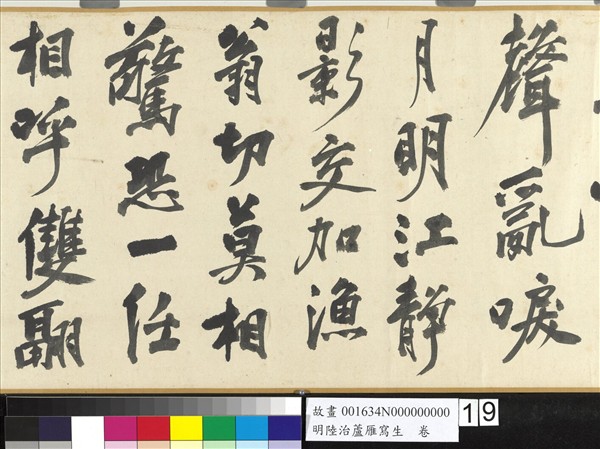 聲亂唳
月明江靜
影交加漁
翁切莫相
驚恐一任
相呼雙翩
故畫 001634N000000000
明陸治蘆雁寫生　卷
19